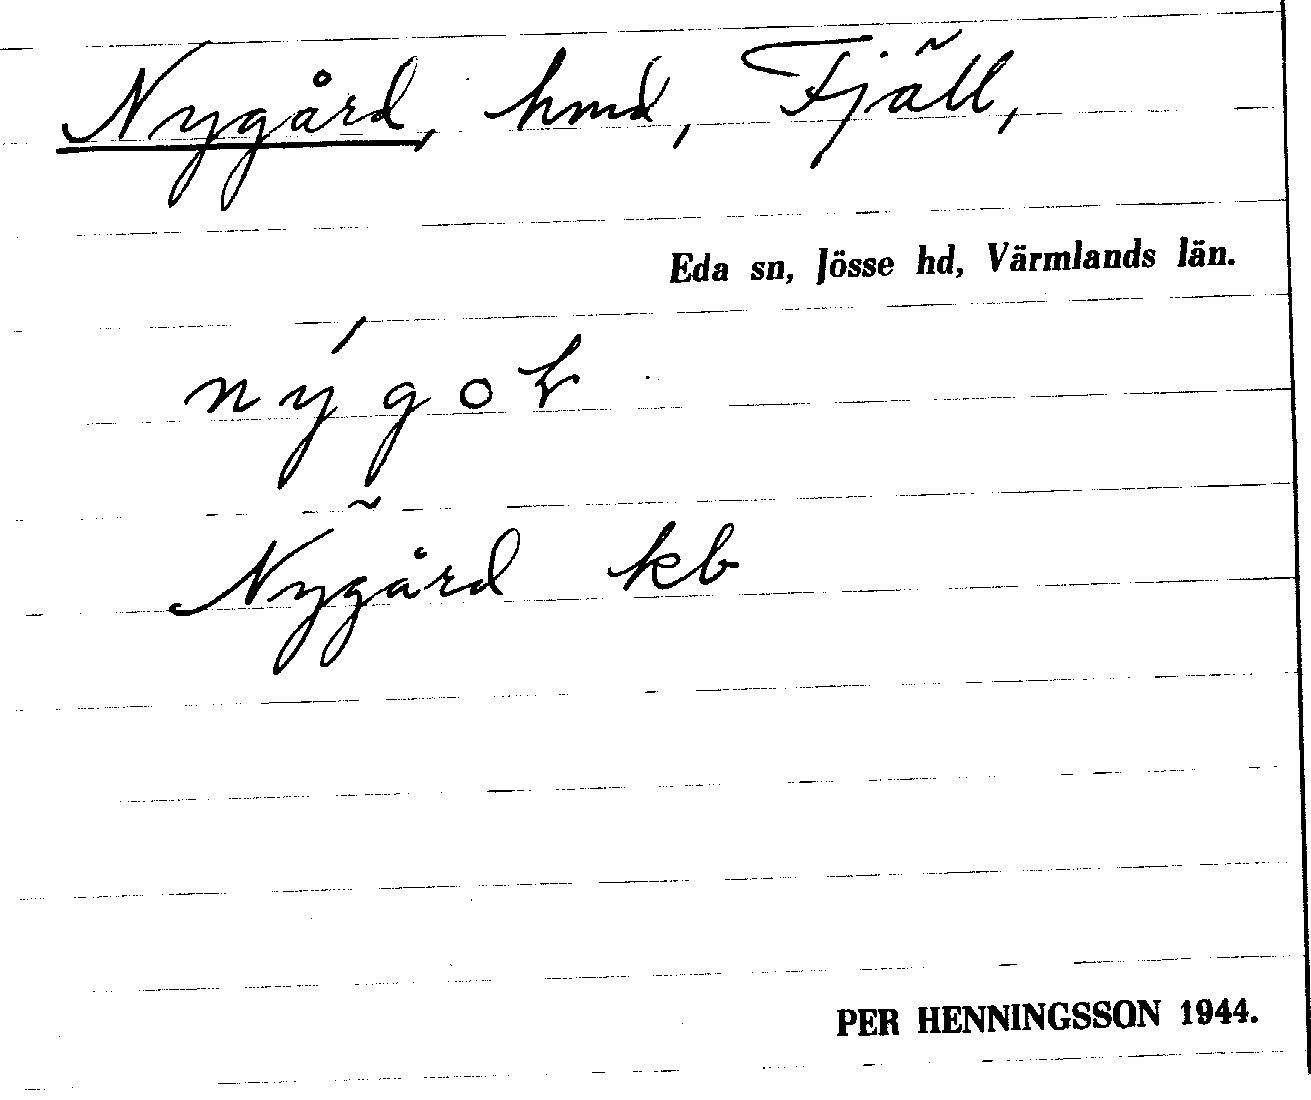 Nygård, hmd, Fjäll,
Eda sn, Jösse hd, Värmlands län.
Nygård kb
PER HENNINGSSON 1944.